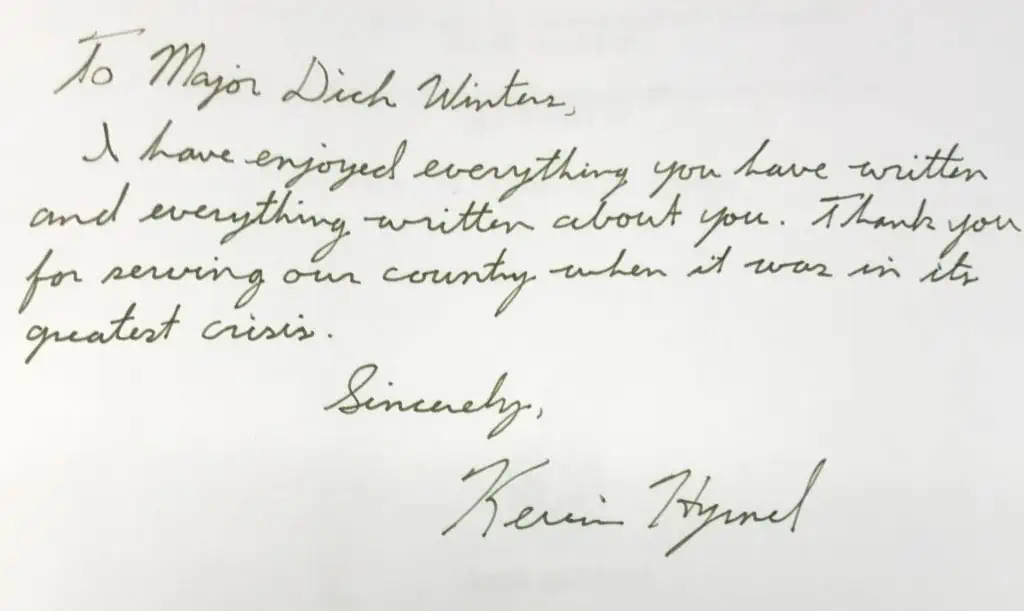 To Major Dick Winters,
I have enjoyed everything you have written
and everything written about you. Thank you
for serving our country when it was in its
greatest crisis.
Sincerely,
Kevin Hymel